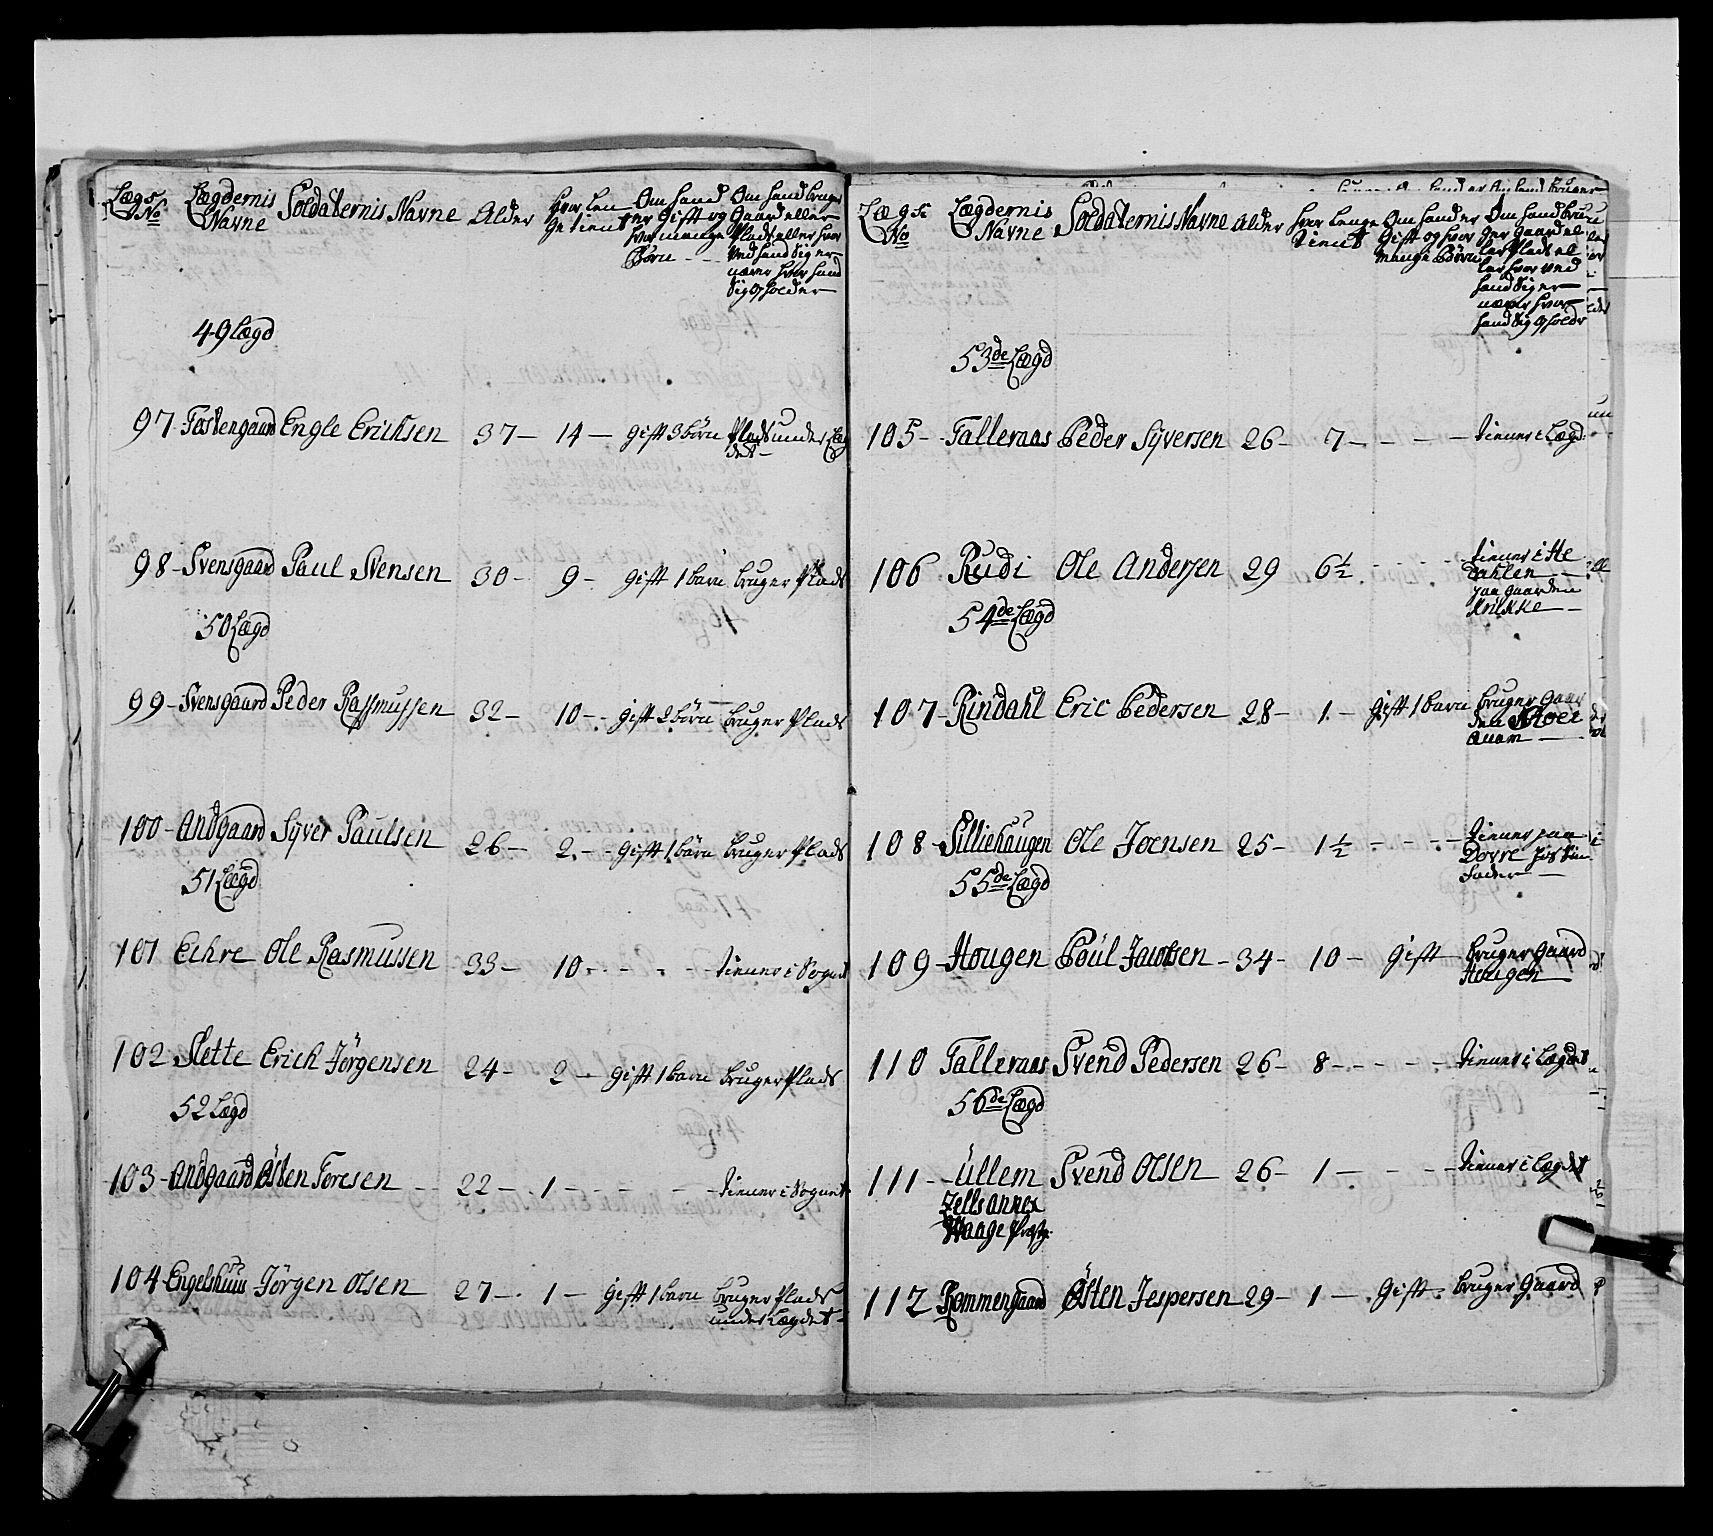 Lægs No
Lægdernis Navne
Soldaternis Navne
Alder
hvor Længe tient
Om hand er Gift og hvor mange Børn
Om hand bruger Gaard eller Plads eller hvor ved hand Sig ernærer hvor hand Sig opholder
49 Lægd
97 Engle Erichsen 37 - 14 - gift 3 børn Plads under Lægdet
98 - Svensgaard Paul Svensen 30 - 9 - gift 1 barn bruger Plads
50 Lægd
99 - Svensgaard Peder Rassmussen 32 - 10 - gift 2 børn bruger Plads
100 - Andgaard Syver Paulsen 26 - 2 - gift 1 børn bruger Plads
51 Lægd
101 Echre Ole Rasmussen 33 - 10 - tiener i Sognet
102 Slette Erich Jörgensen 24 - 2 - gift 1 barn bruger Plads
52 Lægd
103 - Andgaard Östen Toresen 22 - 1 - tiener i Sognet
104 - Engelshuus Jörgen Olsen 27 - 1 - gift 1 barn bruger Plads
under Lægdet
Lægs No
Lægdernis Navne
Soldaternis Navne
Alder
hvor Længe tient
Om hand er Gift og hvor mange Børn
Om hand bruger Gaard eller Plads eller hvor ved hand Sig ernærer hvor hand Sig opholdr
53de Lægd
105 - Talleraas Peder Syversen 26 - 7 - tiener i Lægd
106 Rudi Ole Andersen 29 6½ tiener i He
dahlen
paa gaarden
54de Lægd
107 - Rindahl Eric Pedersen 28 - 1 - gift 1 barn bruger Gaar
den
108 - Lilliehaugen Ole Joensen 25 - 1½ tiener paa
Dovre hos Sin
fader
55de Lægd
109 - Hougen Poül Jacobsen - 34 - 10 - gift bruger Gaard
Hougen
110 Talleraas Svend Pedersen 26 - 8 - tiener i Lægdet
56de Lægd
111 - Ullem Svend Olsen 26 - 1 - tiener i Lægdet
Zells annex
Waage Præstg:
112 Rommengaard Østen Jespersen 29 - 1 - gift bruger Gaard